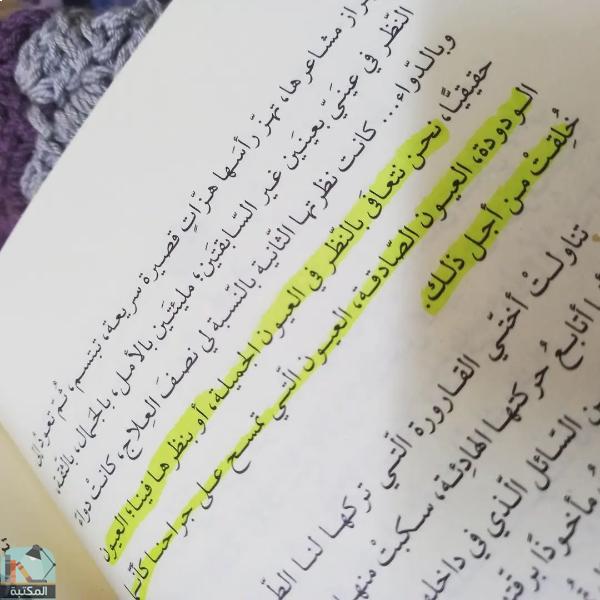 راز مشاعرها، تهزّ رأسَها هزّاتٍ قصيرة سريعة، تبتسم، ثمّ تعود إلى
النّظر في عينَيّ بعينَين غير السّابقتَين؛ مليئتَين بالأمل، بالجمال، بالثقة،
وبالدّواء... كانت نظرتها الثّانية بالنّسبة لي نصفَ العِلاج، كانتْ دواءً
حقيقيًّا، نحن نتعافى بالنّظر في العيون الجميلة، أو بنظرها فينا؛ العيون
الودودة، العيون الصّادقة، العيون الّتي تمسح على جراحنا كأنّها
خُلقتْ من أجل ذلك.
تناولتْ أختي القارورة الّتي تركها لنا
أتابعُ حركتها الهادئة، سكبتْ منها
السّائل الّذي في داخله
مأخوذًا برقّة
المكتبة